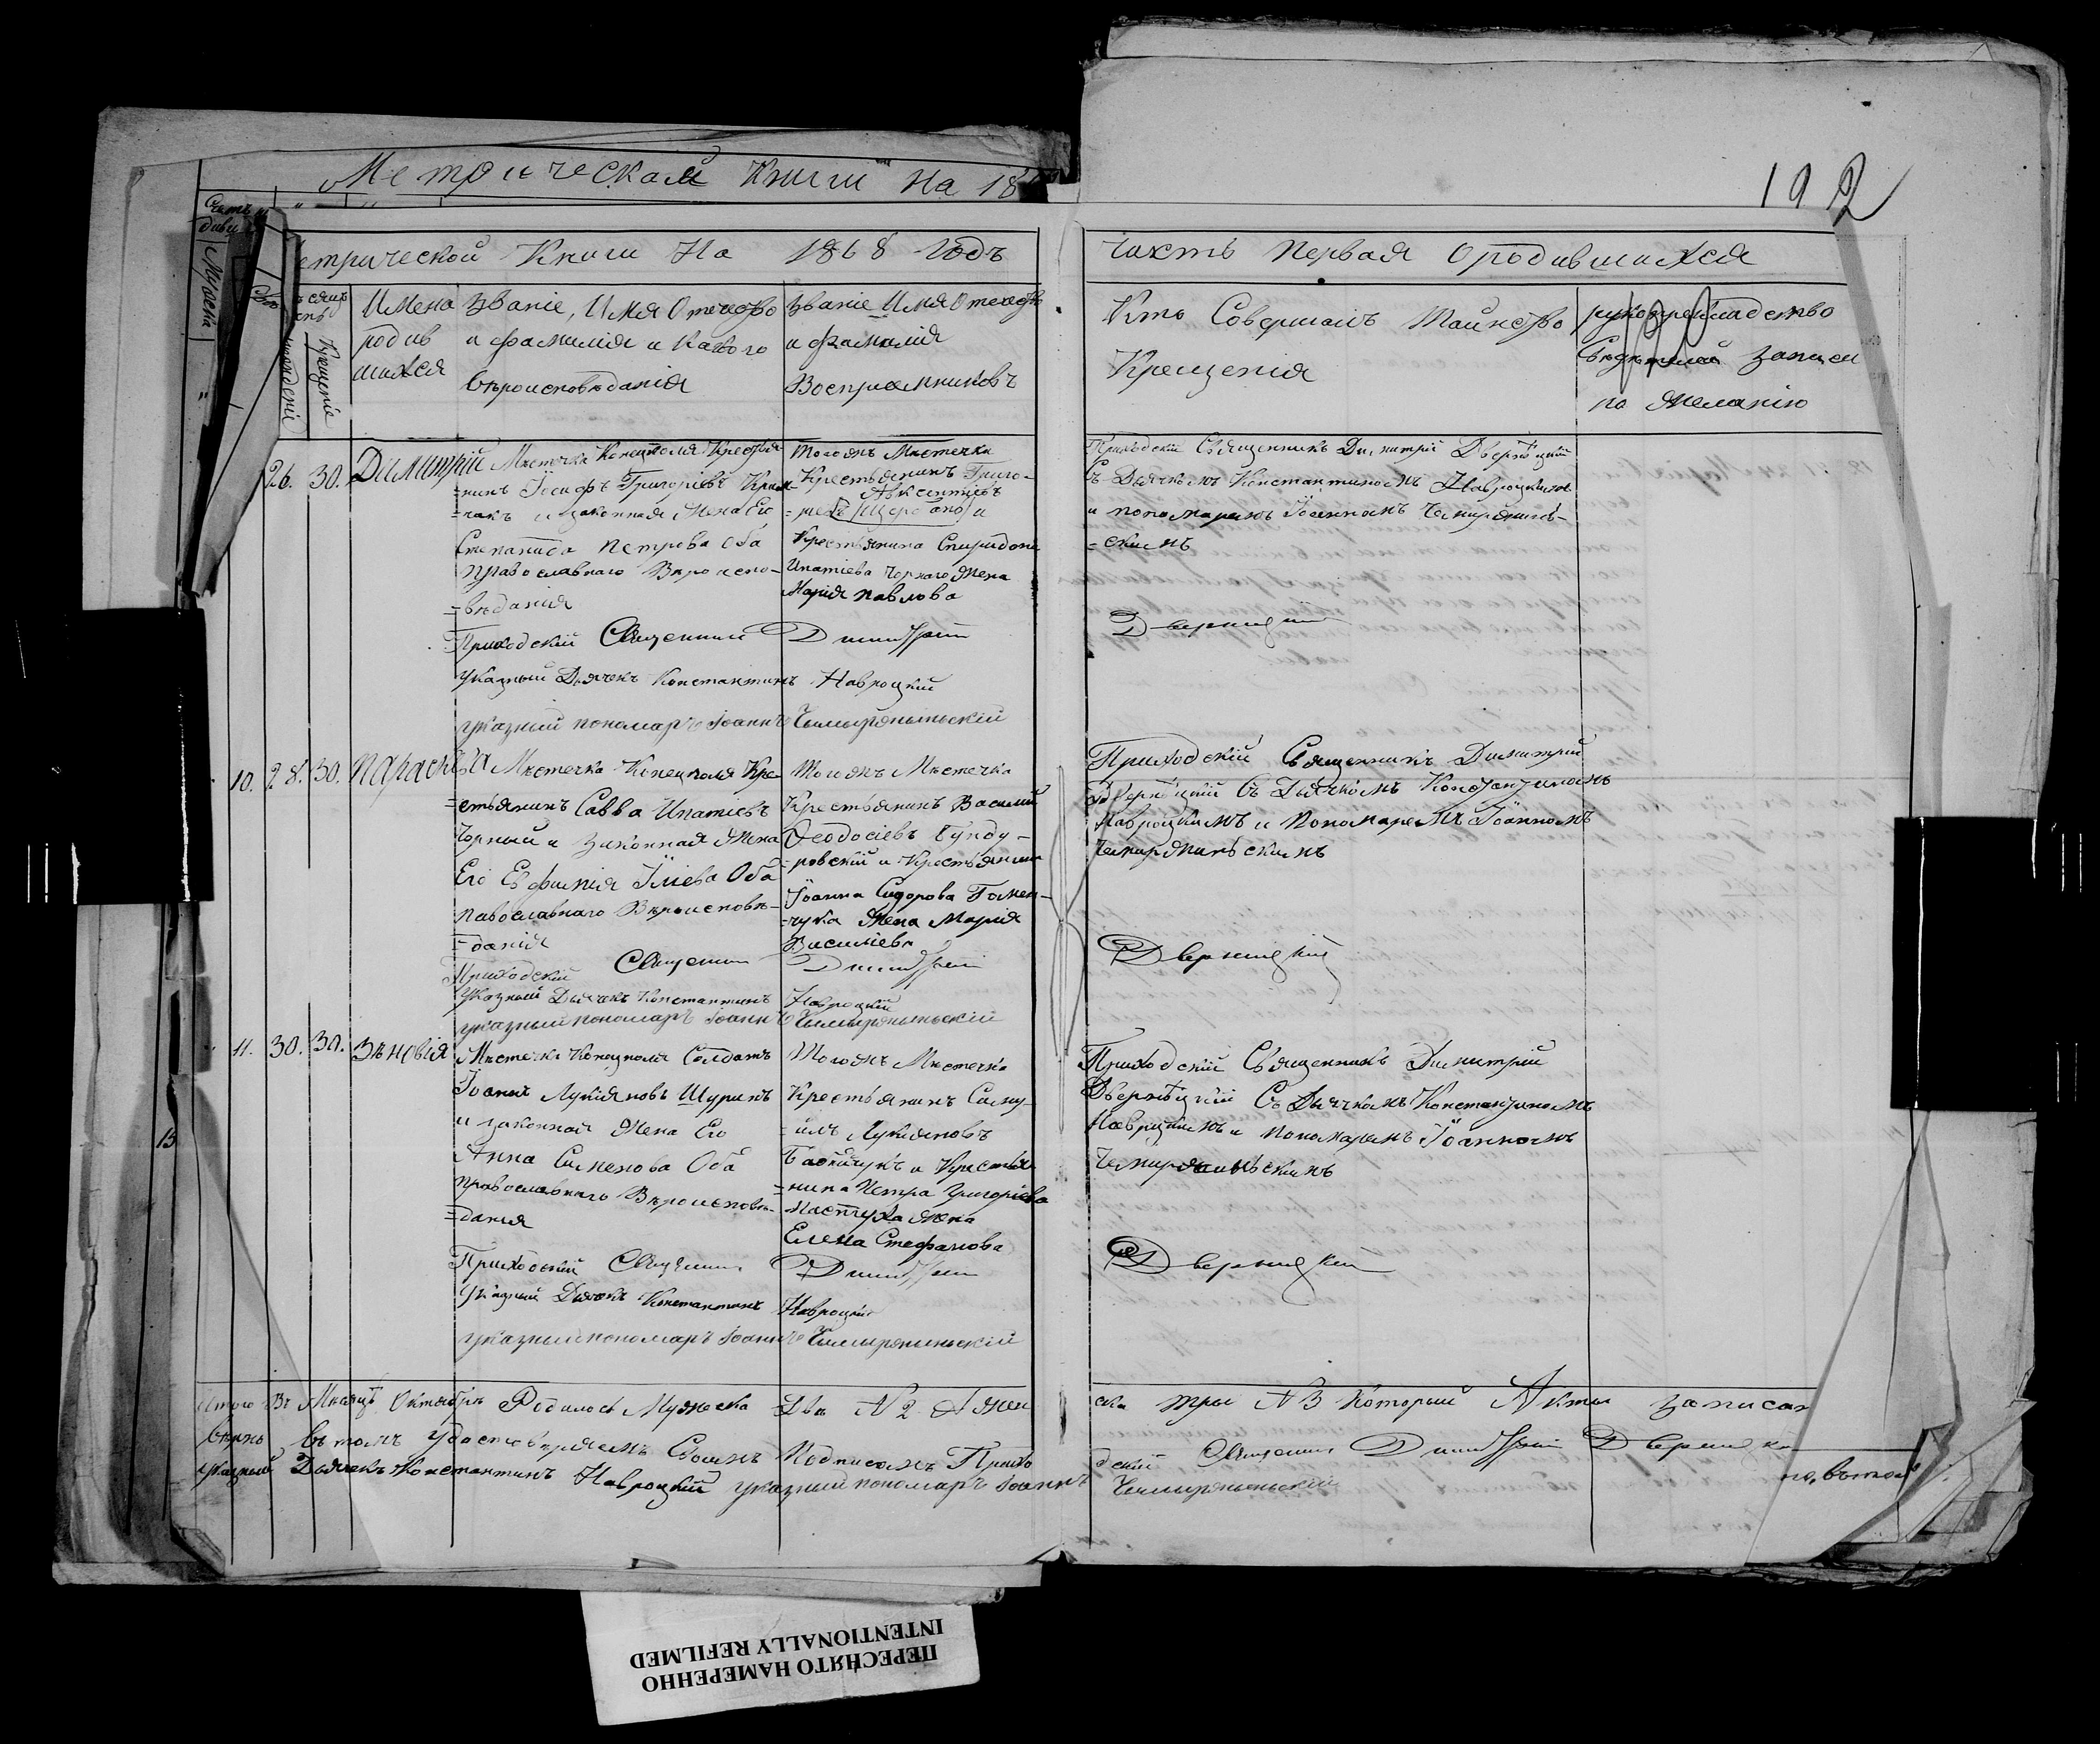 Метрической Книги на 18
192
Метрической Книги На 1868 Годъ
Часть Первая О родившихся
Счетъ
Мужска
рожденіе
Крещеніе
Имена родив шихся
Званіе, Имя Отечество и фамилія и Какого Вѣроисповѣданія
Званіе Имя Отечество и фамилія Восприемниковъ
Кто Совершалъ Таинство Крещенія
рукоприкладство Свидѣтелей записи по желанію
26. 30. Димитрій
Мѣстечка Конецполя Крестья
=нинъ Іосифъ Григоріевъ
и законная Жена Его
Степанида Петрова Оба
Православнаго Вѣроиспо-
=вѣданія
Тогожъ Мѣстечка
Крестьянинъ Григо-
Авксентіевъ
и
Крестьянина Спиридона
Ипатіева Чорнаго Жена
Марія Павлова
Приходскій Священникъ Димитрій Дверницкій
Съ Дьячкомъ Константиномъ Навроцкимъ
и пономаремъ Іоанномъ
=скимъ
Приходскій Священникъ Димитрій Дверницкій
Указный Дьячекъ Константинъ Навроцкій
указный пономарь Іоаннъ
10. 28. 30. Параскева
Мѣстечка Конецполя Кре-
=стьянинъ Савва Ипатіевъ
Чорный и Законная Жена
Его Евфимія Іліева Оба
Павославнаго Вѣроисповѣ-
=данія
Тогожъ Мѣстечка
Крестьянинъ Василий
Феодосіевъ Бунду-
=ровскій и Крестьянина
Іоанна Сидорова Гомен-
=чука Жена Марія
Василіева
Приходскій Священникъ Димитрій
Дверницкій Съ Дьячкомъ Константиномъ
Навроцкимъ и Пономаремъ Іоанномъ
Приходскій Священникъ Димитрій Дверницкій
Указный Дьячекъ Константинъ Навроцкій
указный пономарь Іоаннъ
11. 30. 30. Зѣновія
Мѣстечка Конецполя Солдатъ
Іоаннъ Лукіяновъ Шуринъ
и законная Жена Его
Анна Сименова Оба
Православнаго Вѣроисповѣ-
=данія
Тогожъ Мѣстечка
Крестьянинъ Саму-
=илъ Лукіяновъ
и Крестья-
=нина Петра Григоріева
Пастуха Жена
Елена Стефанова
Приходскій Священникъ Димитрій
Дверницкій Съ Дьячкомъ Константиномъ
Навроцкимъ и Пономаремъ Іоанномъ
Приходскій Священникъ Димитрій Дверницкій
Указный Дьячекъ Константинъ Навроцкій
указный пономарь Іоаннъ
15
Итого Въ Мѣсяцѣ Октябрѣ Родилось Мужеска Два N 2 А Жен
ска три N 3 Который Акты записан
вѣрно въ томъ Удостовѣряемъ Своимъ Подписомъ Прихо
дскій Священникъ Димитрій Дверницкій
указный Дьячекъ Константинъ Навроцкій указный пономарь Іоаннъ
ПЕРЕСНЯТО НАМЕРЕННО
INTENTIONALLY REFILMED